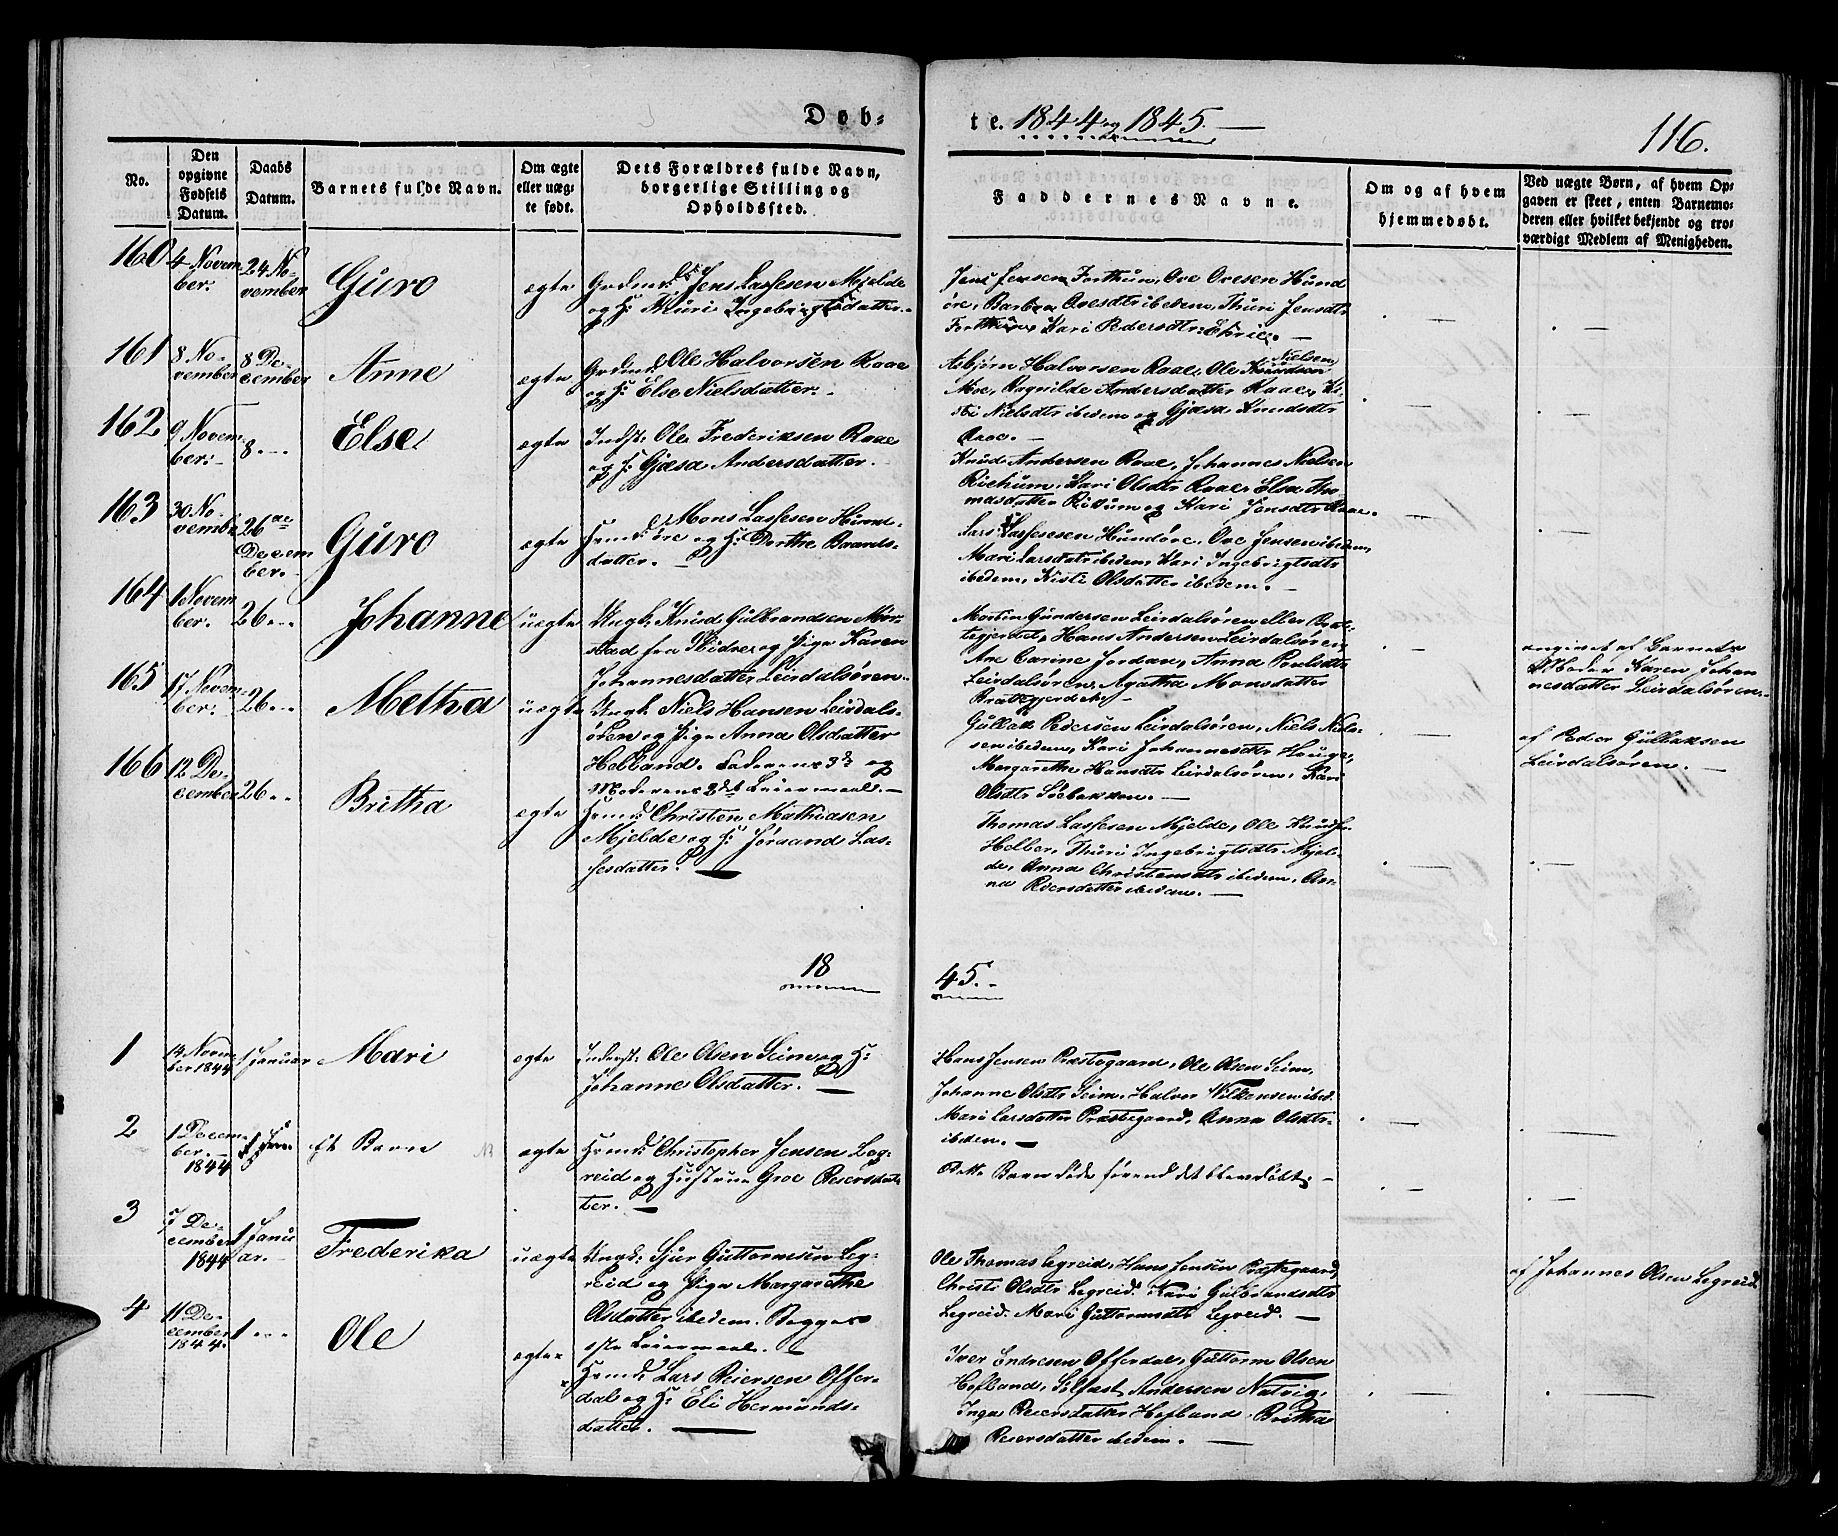 Døb-
te. 1844 og 1845. —
116.
No.
Den
opgivne
Fødsels
Datum.
Daabs
Datum.
Barnets fulde Navn.
Om ægte
eller uæg-
te født.
Dets Forældres fulde Navn,
borgerlige Stilling og
Opholdssted.
Faddernes Navne.
Om og af hvem
hjemmedøbt.
Ved uægte Børn, af hvem Op-
gaven er skeet, enten Barnemo-
deren eller hvilket bekjendt og tro-
værdigt Medlem af Menigheden.
160
4 Novem
ber.
24 No-
vember
Guro
ægte
Jens Lassesen Mjelde
og H: Thuri Ingebrigtsdatter.
Jens Jensen Forthun, Ove Ovesen Hund
øre, Barbra Ovesdtr ibedem, Thuri Jensdtr
Forthun, Kari Pedersdtr
161
8 No-
vember
8 De-
cember
Anne
ægte
Ole Halvorsen Raae
og H: Else Nielsdatter. -
Asbjørn Halvorsen Raae, Ole Nielsen
Moe, Ragnilde Andersdatter Raae, Ki-
sti Nielsdtr ibedem og Gjøsa Knudsdtr
Raae. —
162
9 Novem-
ber.
8. --
Else
ægte
Indst: Ole Frederiksen Raae
og H: Gjøsa Andersdatter.
Knud Andersen Raae, Johannes Nielsen
Rickum, Kari Olsdtr Raae, Elsa Tho-
masdatter Rickum og Kari Jonsdtr Raae.
163
30 No-
vembr
26de
Decem
ber.
Guro
ægte
Huusmd: Mons Lassesen Hunde-
øre og H: Dorthe Baards-
datter. —
Lars Lassesen Hundøre, Ove Jensen ibedem,
Mari Larsdatr ibedem, Kari Ingebrigtsdtr
ibedem, Kisti Olsdatter ibedem. —
164
1 Novem
ber.
26 - - -
Johanne
uægte
Ungk: Knud Gulbrandsen Mør-
stad fra Slidre og Pige Karen
Johannesdatter Leirdalsøren
Morten Gundersen Leirdalsøren eller Brat-
tegjerdet, Hans Andersen Leirdalsøren,
Ane Carine Jordan, Anna Poulsdtr
Leirdalsøren, Agatha Monsdatter
Brattegjerdet —
angivet af Barnets
Moder Karen Johan
nesdatter Leirdalsøren.
165
17 Novem-
ber.
26 - - -
Metha
uægte
Ungk: Niels Hansen Leirdals-
øren og Pige Anna Olsdatter
Helland. Faderens 3de og
Moderens 2det Leiermaal. —
Gullak Pedersen Leirdalsøren, Niels Niel-
sen ibedem, Kari Johannesdtr Hauge,
Margarethe Hansdtr Leirdalsøren, Kari
Olsdtr Solbakken. —
af Peder Gullaksen
Leirdalsøren. —
166
12 De-
cember
26 - -
Britha
ægte
Huusmd: Christen Mathiasen
Mjelde og H: Jøraand Las-
sesdatter. —
Thomas Lassesen Mjelde, Ole Knuds:
Heller, Thuri Ingebrigtsdtr Mjel-
de, Anna Christensdtr ibedem, An-
na Peersdatter ibedem. —
18
45. -
1
14 Novem-
ber 1844
1 Januar
Mari
ægte
Inderst: Ole Olsen Seim og H:
Johanne Olsdatter. —
Hans Jensen Præstegaard, Ole Olsen Seim,
Johanne Olsdtr Seim, Halvor Wilkensen ibed.
Mari Larsdatter Præstegaard, Anna Olsdtr
ibedem. —
2
1 Decem-
ber.
1844
Et Barn
ægte
Huusmd: Christopher Jensen Leg-
reid og Hustrue Groe Reiersdat-
ter. —
Dette Barn døde førend det blev døbt. —
3
7 De-
cember
1844
1 Janu
ar.
Frederika
uægte
Ungk: Sjur Guttormsen Leg-
reid og Pige Margarethe
Olsdatter ibedem. Begges
1ste Leiermaal. —
Ole Thomas: Legreid, Hans Jensen Præstegaard,
Christi Olsdtr Legreid. Kari Gulbrandsdtr
Legreid. Mari Guttormsdtr Legreid. —
af Johannes Olsen Legreid
4
11 De-
cember
1844.
1 - - -
Ole
ægte
Huusmd: Lars Reiersen Offer-
dal og H: Eli Hermunds-
datter. —
Iver Endresen Offerdal, Guttorm Olsen
Hofland, Solfast Andersen Natvig,
Inga Reiersdatter Hofland, Britha
Reiersdatter ibedem. —